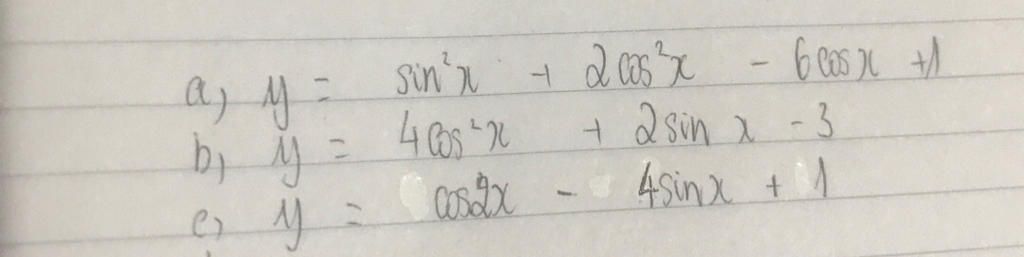 a) y = sin²x + 2cos²x - 6cosx + 1
b) y = 4cos²x + 2sin x - 3
c) y = cos2x - 4sinx + 1